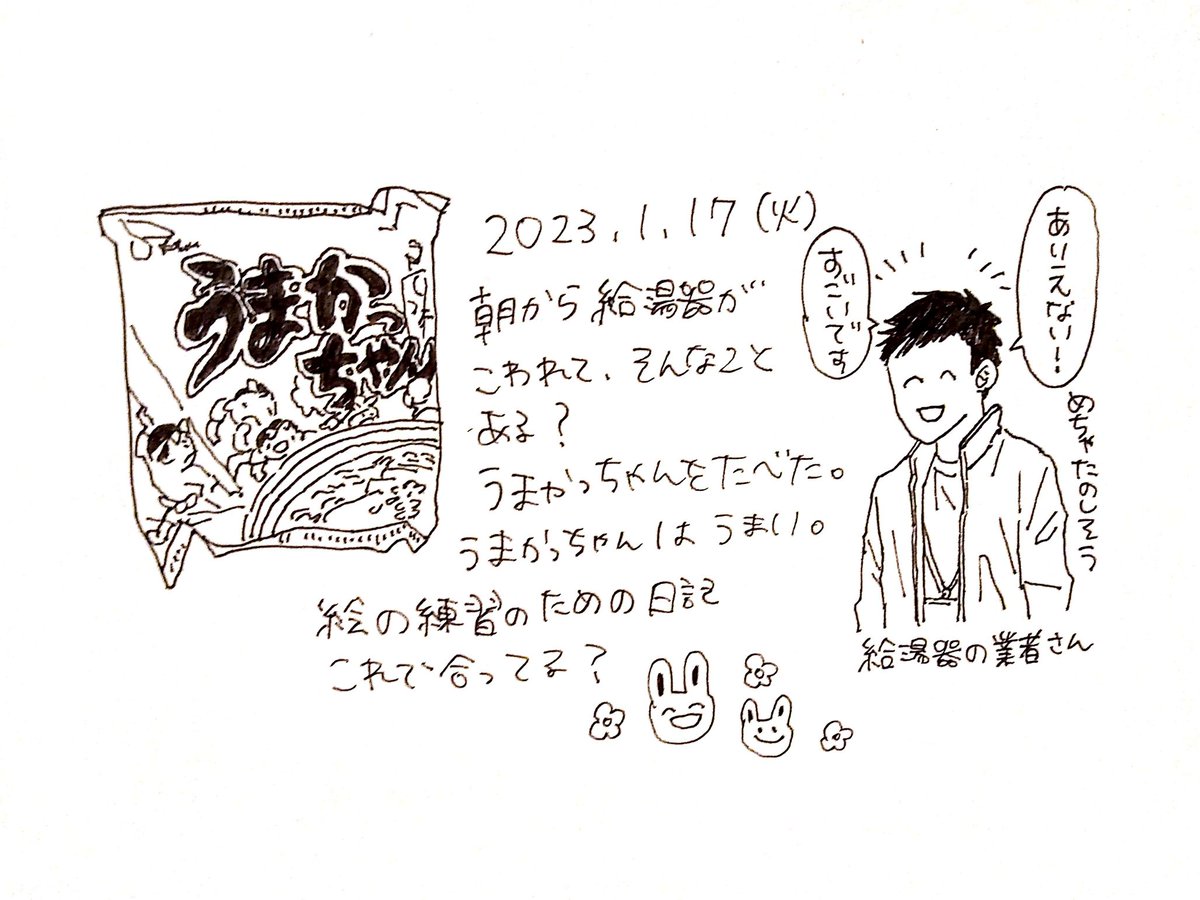 うまかっ
ちゃん
2023.1.17(火)
朝から給湯器が
こわれて、そんなこと
ある?
うまかっちゃんをたべた。
うまかっちゃんは うまい。
絵の練習のための日記
これで合ってる?
すごいです
ありえない!
めちゃたのしそう
給湯器の業者さん